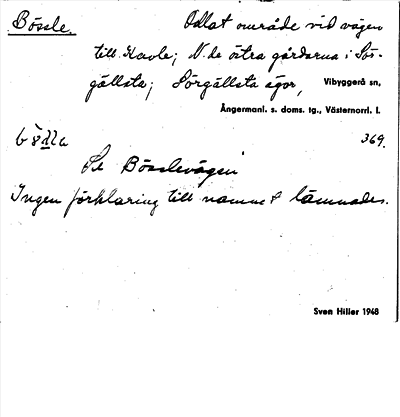 Bössle. Odlat område vid vägen
till Kavle; N. de östra gårdarna i Sör-
gällsta; Sörgällsta ägor, Vibyggerå sn,
Ångermanl. s. doms. tg., Västernorrl. l.
369.
Se Bösslevägen
Ingen förklaring till namnet lämnades.
Sven Hiller 1948